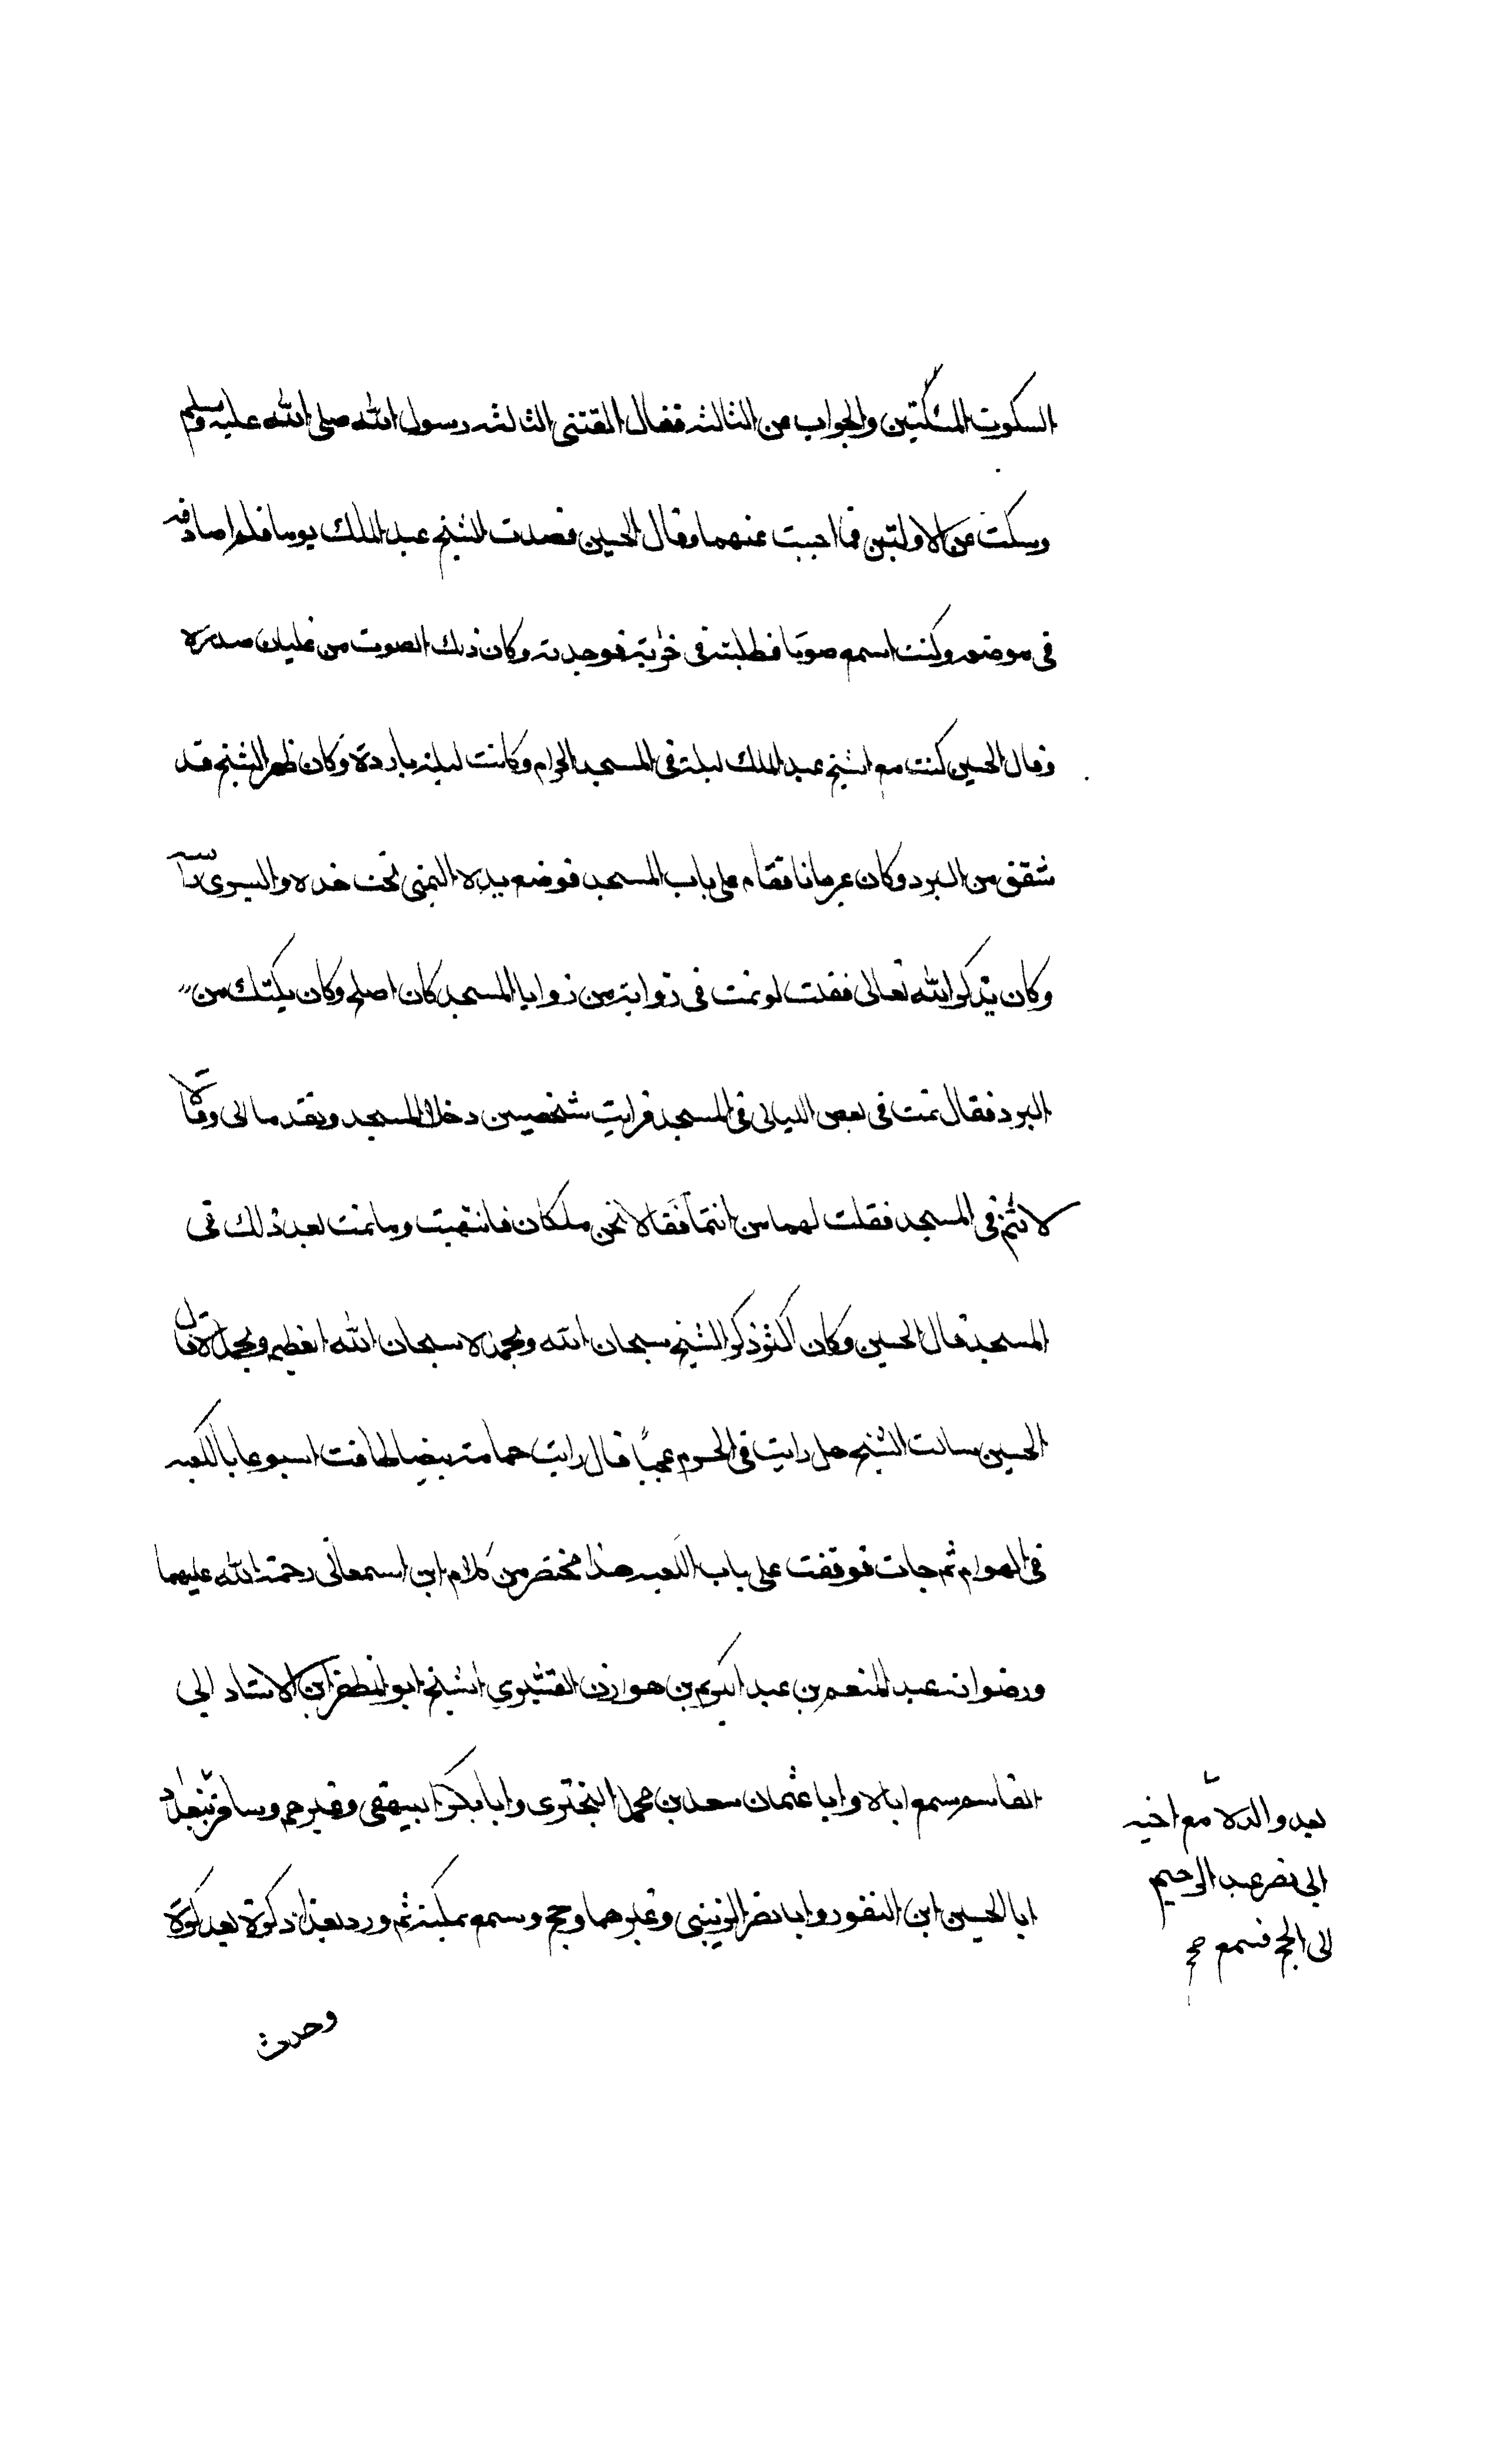 السكوت المسكتين والجواب من الثالثه فقال القتنى الثالثه رسول الله صلى الله عليه وسلم
وسكت عن الاولتين فما اجبت عنهما وقال الحسين قصدت الشيخ عبد الملك يوما فلم اصادفه
فى موضعه وكنت اسمع صوتا فطلبته فى خزانة فوجدته وكان ذلك الصوت من غليان صدره
وقال الحسين كنت مع الشيخ عبد الملك ليلة فى المسجد الحرام وكانت ليلة باردة وكان ظهر الشيخ قد
شقق من البرد وكان عريانا فقام على باب المسجد فوضع يده اليمنى تحت خده واليسرى
وكان يذكر الله تعالى فقلت لو نمت فى زواية من زوايا المسجد كان اصلح وكان يكنك من
البرد فقال نمت فى بعض الليالى فى المسجد فرايت شخصين دخلا المسجد وتقدما الى وقالا
لا تنم فى المسجد فقلت لهما من انتما فقالا نحن ملكان فانتهبت وما نمت بعد ذلك فى
المسجد قال الحسين وكان اكثر ذكر الشيخ سبحان الله وبحمده سبحان الله العظيم وبحمده قال
الحسين سالت الشيخ هل رايت فى الحرم عجبا قال رايت حمامة بيضا طافت اسبوعا بالكعبه
فى الهوام ثم جات فوقفت على باب الكعبه هذا مختصر من كلام ابن اسمعانى رحمة الله عليهما
ورضوانه عبد المنعم بن عبد الكريم بن هوازن القشيرى الشيخ ابو المظفر ابن الاستاد ابى
القاسم سمع اباه وابا عثمان سعد بن محمد البحترى وابا بكر البيهقى وغيرهم وسافر بغداد
بعد والده مع اخيه
ابى نصر عبد الرحيم
الى الحج فسمع صح
ابا الحسين ابن النقور وابا نصر الزينبى وغيرهما وحج وسمع بمكة ثم ورد بغداد كرة بعد كرة
وحدث